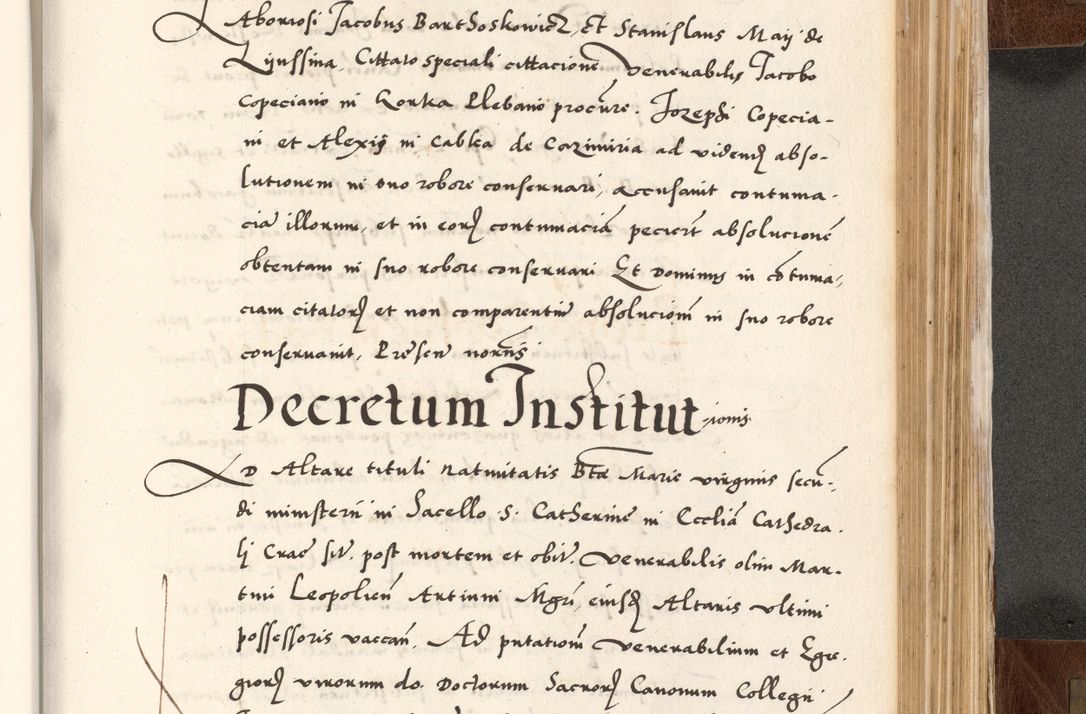 Laboriosi Jacobus Barthoskowicz, et Stanislaus Maij de
Lijnssina, Cittato speciali cittacione Venerabilis Jacobo
Copeciano in Gorka Plebano procure. Jozephi Copecia-
ni et Alexij in Cabka de Cazimiria ad videnđ abso-
lutionem in suo robore conseruari, accusauit contuma-
cia illorum, et in eorƶ contumaciā peciert absolucionē
obtentam in suo robore conseruari Et Dominus in cōtuma-
ciam citatorƶ et non comparentiū absolucionē in suo robore
conseruauit, Presen notariis
Decretum Institut-ionis
AD Altare tituli Natiuitatis Btae Marie virginis secū-
di ministerii in Sacello S. Catherine in Ecclia Cathedra-
li Crae sit. post mortem et obit. Venerabilis olim Mar-
tini Leopolien Artium Mgri, eiusđ Altaris vltimi
possessoris vaccan. Ad putationē Venerabilium et Egre-
giorƶ virorum do. Doctorum Sacrorƶ Canonum Collegii